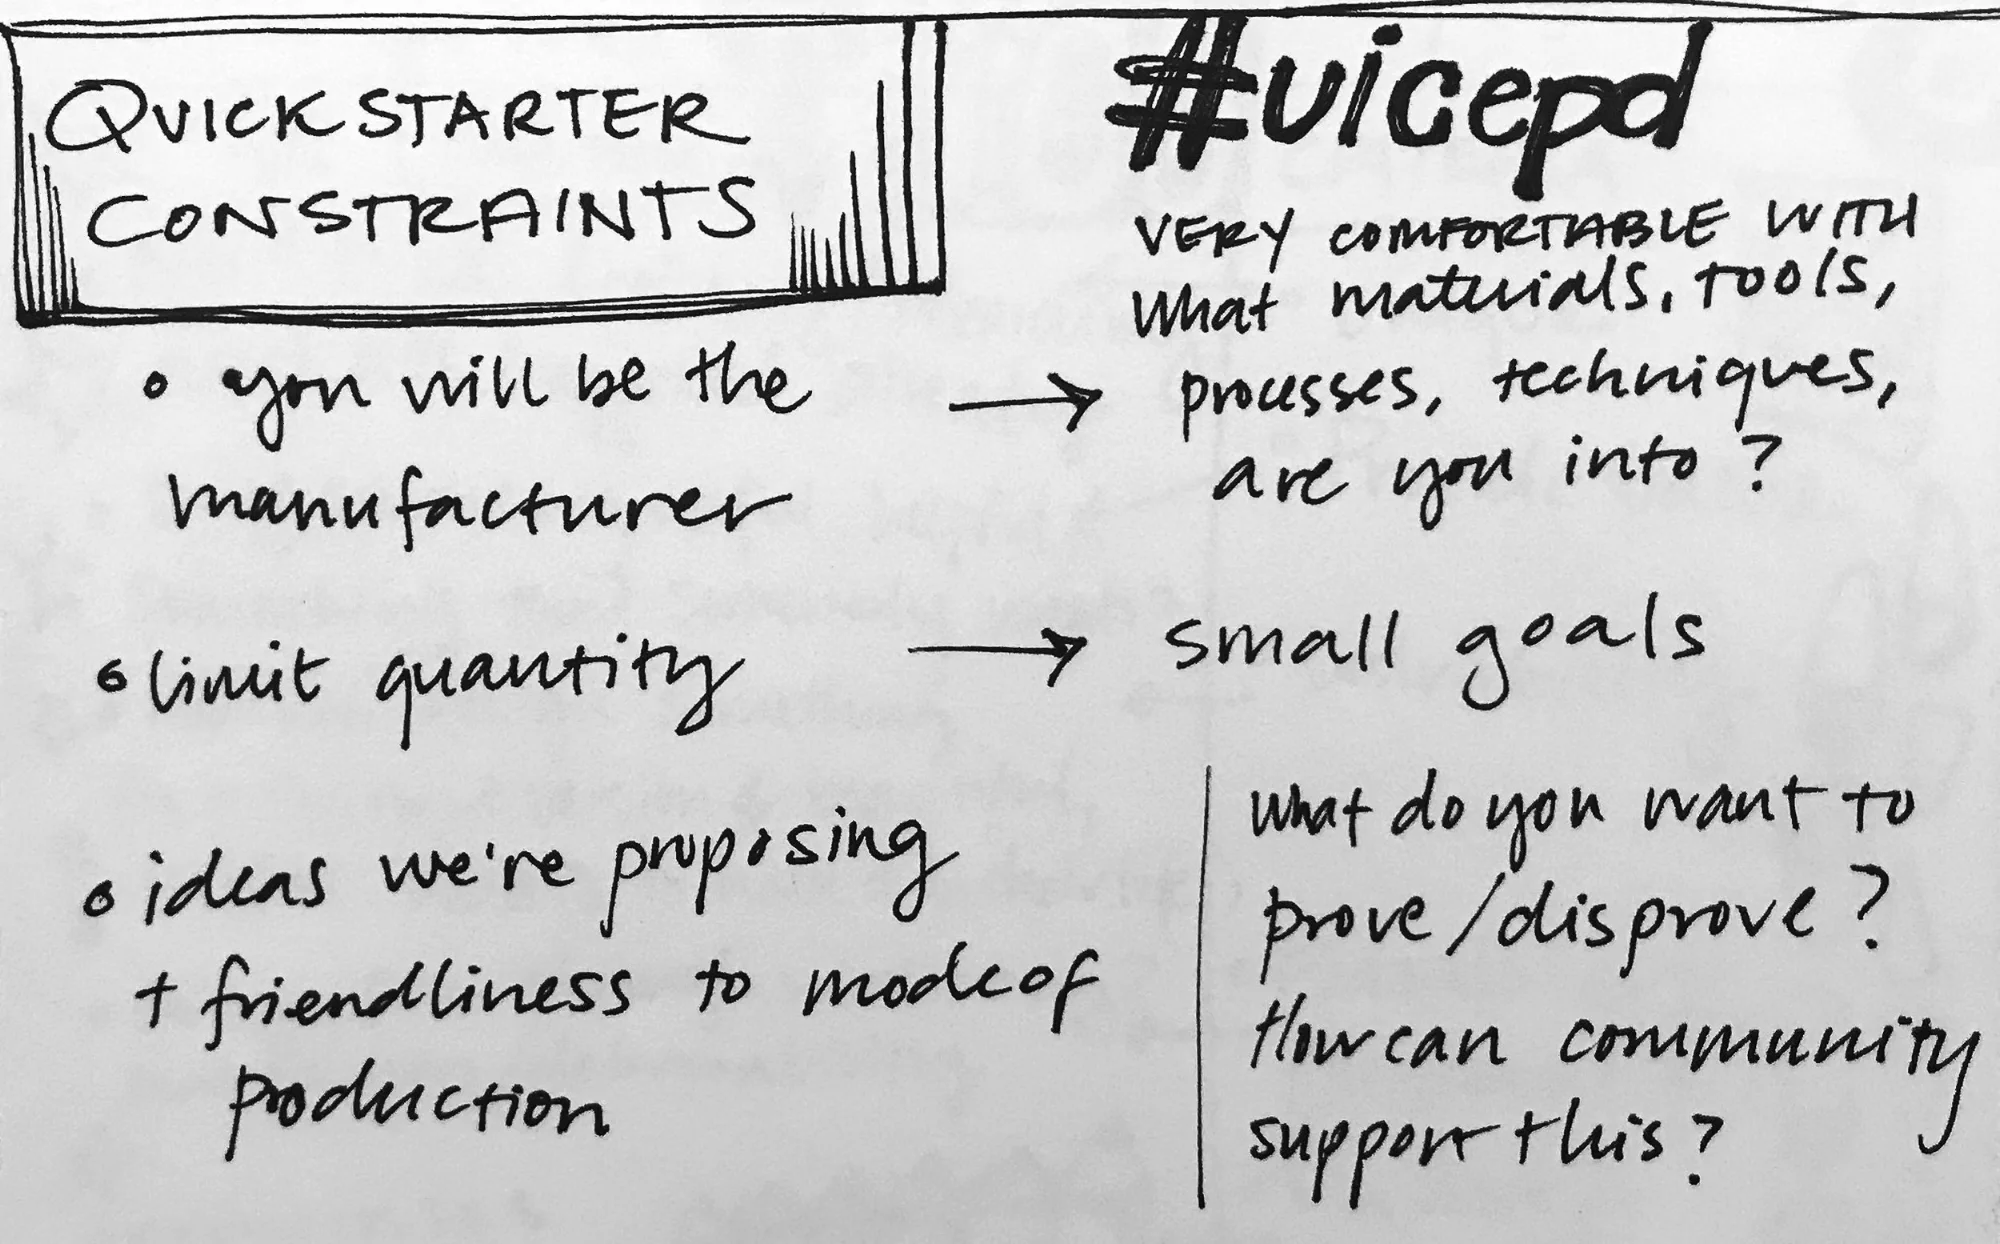 QUICKSTARTER
CONSTRAINTS
#uicepd
VERY COMFORTABLE WITH
What materials, tools,
processes, techniques,
are you into?
• you will be the →
manufacturer
• limit quantity → small goals
• ideas we're proposing
+ friendliness to mode of
production
What do you want to
prove/disprove?
How can community
support this?